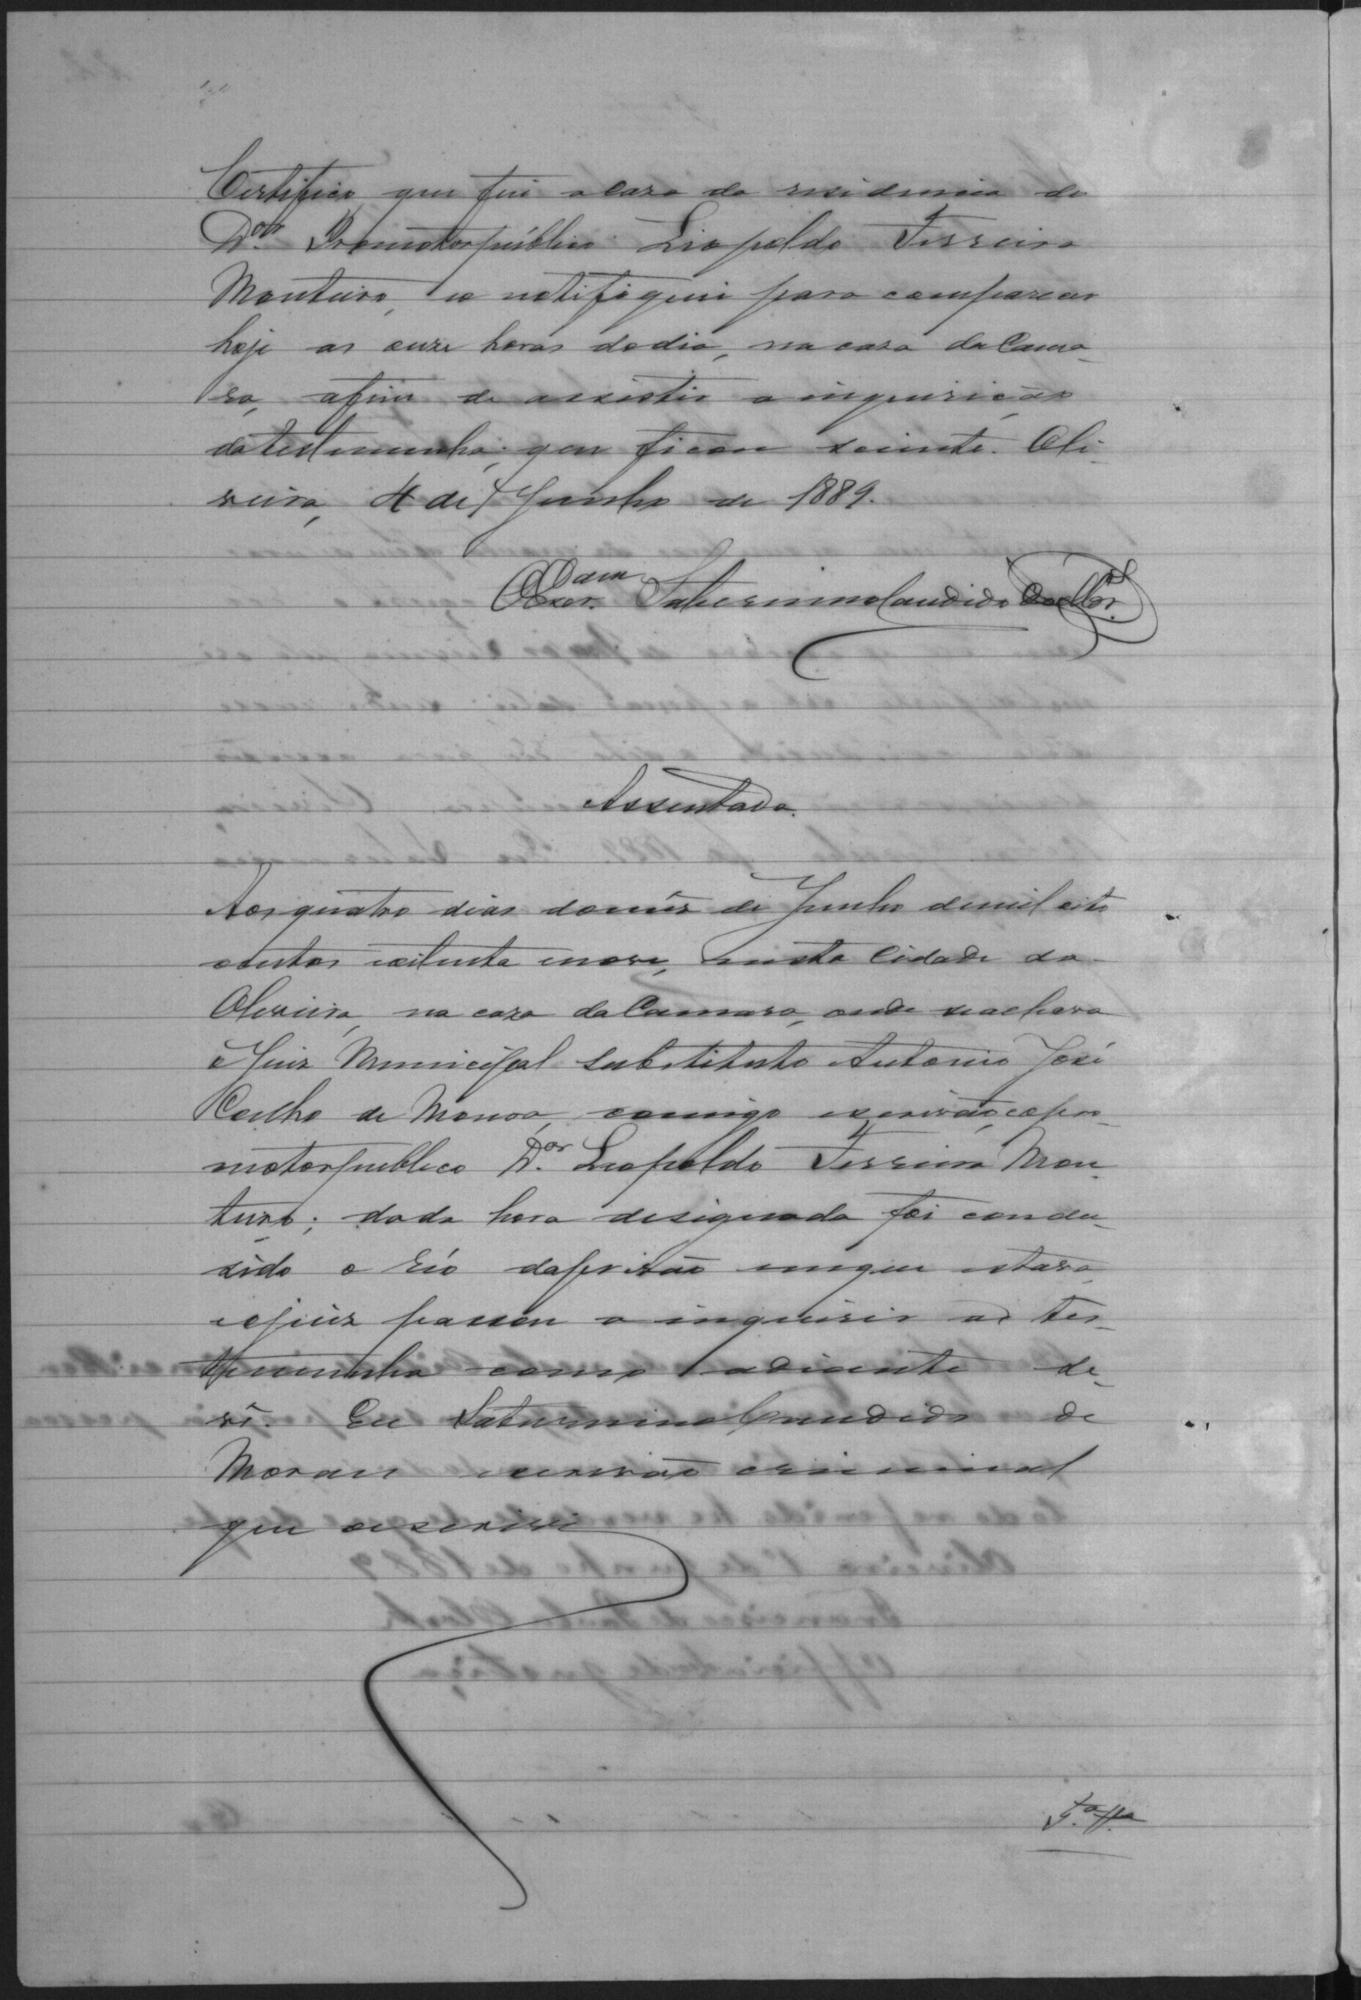 Certifico que fui a caza da residencia do
Dor. Promotor publico Liopoldo Ferreira
Monteiro, e o notifiquei para comparecer
hoje as onze horas do dia, na caza da Cama-
ra, afim de assistir a inquirição
da testemunha; que ficou sciente. Oli-
veira, 4 de Junho de 1889.
O Escr.am Saturnino Candido de Mor.es
Assentada.
Aos quatro dias do mês de Junho de mil oito
centos e oitenta e nove, nesta Cidade da
Oliveira, na caza da Camara, onde se achava
o Juiz Municipal Substituto Antonio José
Coelho de Moura, comigo escrivão, e o pro-
motor publico Dor. Liopoldo Ferreira Mon-
teiro; dada hora designada foi condu-
zido o réo da prizão em que estava,
e o juiz passou a inquirir as tes-
temunha como adiante se
vê. Eu Saturnino Candido de
Moraes escrivão criminal
que o escrevi